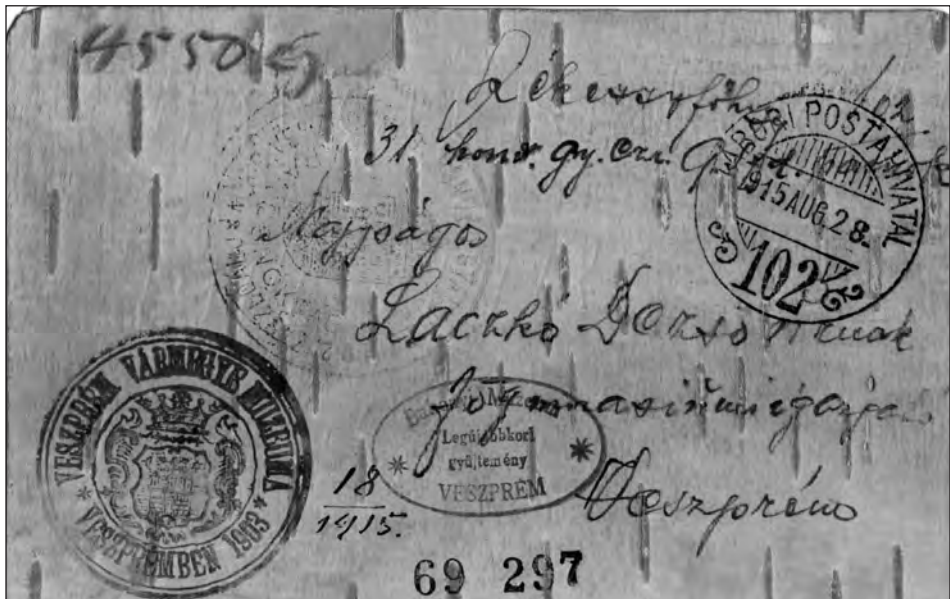 4550
31. honv. gy. ezr.
TÁBORI POSTAHIVATAL
1915 AUG. 28.
102
Nagyságos
Laczkó Dezső Urnak
főgymnasiumi igazga
Veszprém
VESZPRÉM VÁRMEGYE MÚZEUMA
VESZPRÉMBEN 1903
Legújabbkori
gyűjtemény
VESZPRÉM
18
1915.
69 297